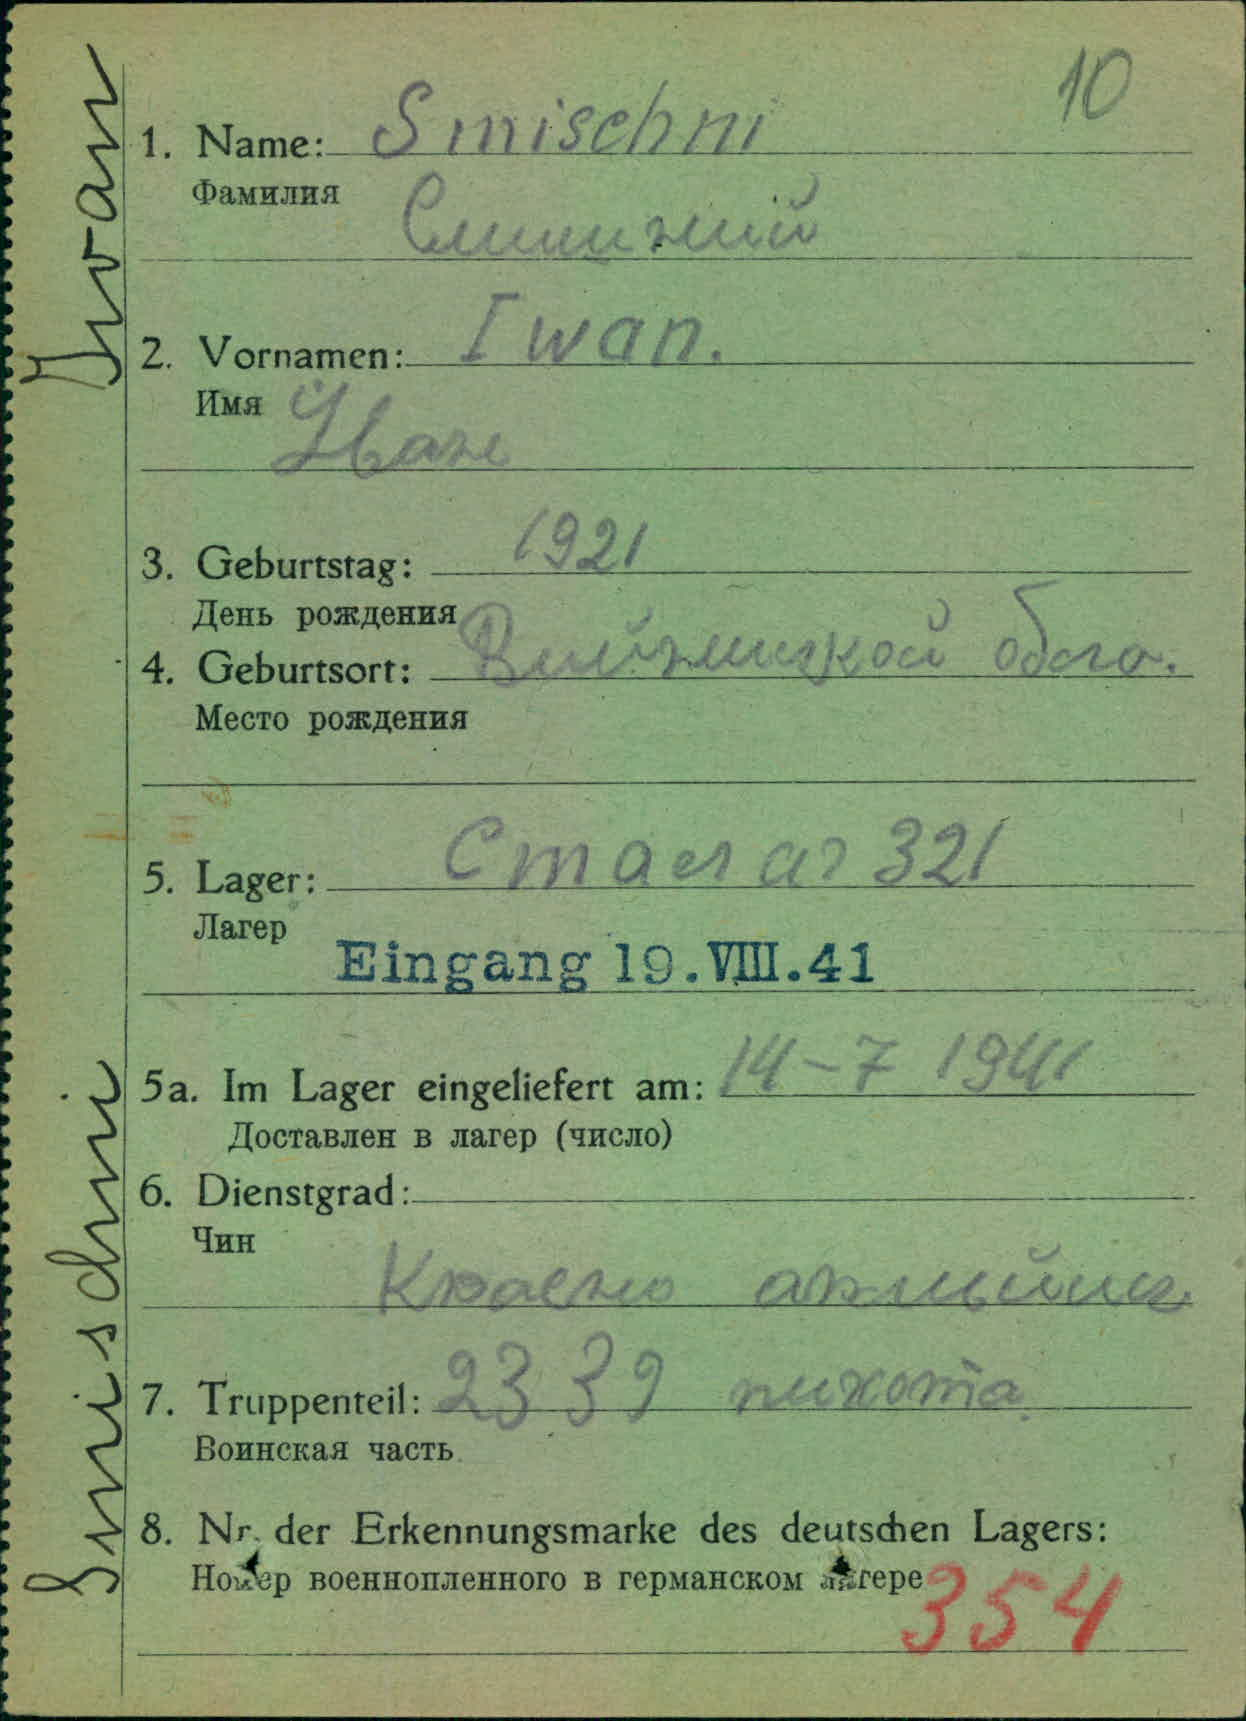 10
1. Name: Smischni
Фамилия
Смишний
2. Vornamen: Iwan.
Имя
Иван
3. Geburtstag: 1921
День рождения
4. Geburtsort: обла.
Место рождения
5. Lager: Сталаг 321
Лагер
Eingang 19.VIII.41
5a. Im Lager eingeliefert am: 14-7 1941
Доставлен в лагер (число)
6. Dienstgrad:
Чин
Красно армыйиц
7. Truppenteil: 23 39 пихота
Воинская часть
8. Nr. der Erkennungsmarke des deutschen Lagers:
Номер военнопленного в германском лагере
354
Smischni Iwan